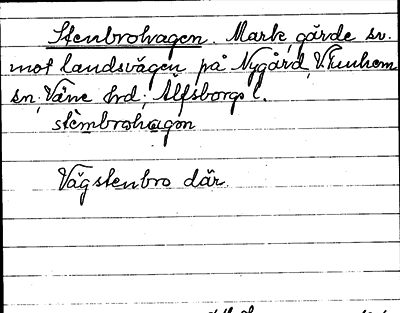 Stenbrohagen. Mark, gärde sv.
mot landsvägen på Nygård, V. Tunhem
sn, Väne hd, Älfsborgs l.
stèmbrohagon
Vägstenbro där.